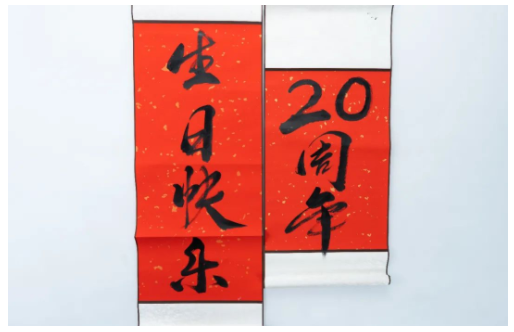 生日快乐
20周年